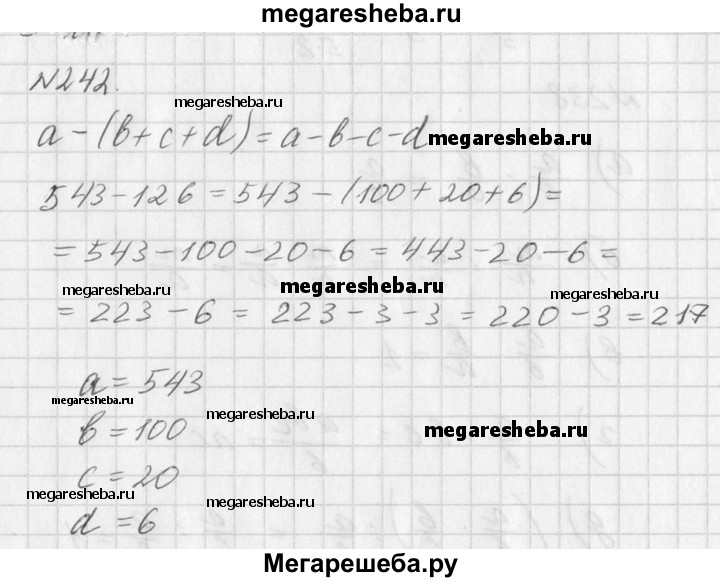 megaresheba.ru
№242.
megaresheba.ru
a-(b+c+d)=a-b-c-d
megaresheba.ru
543-126=543-(100+20+6)=
=543-100-20-6=443-20-6=
megaresheba.ru megaresheba.ru megaresheba.ru
=223-6=223-3-3=220-3=217
a=543
megaresheba.ru megaresheba.ru
b=100 megaresheba.ru
c=20
megaresheba.ru megaresheba.ru
d=6
Мегарешеба.ру